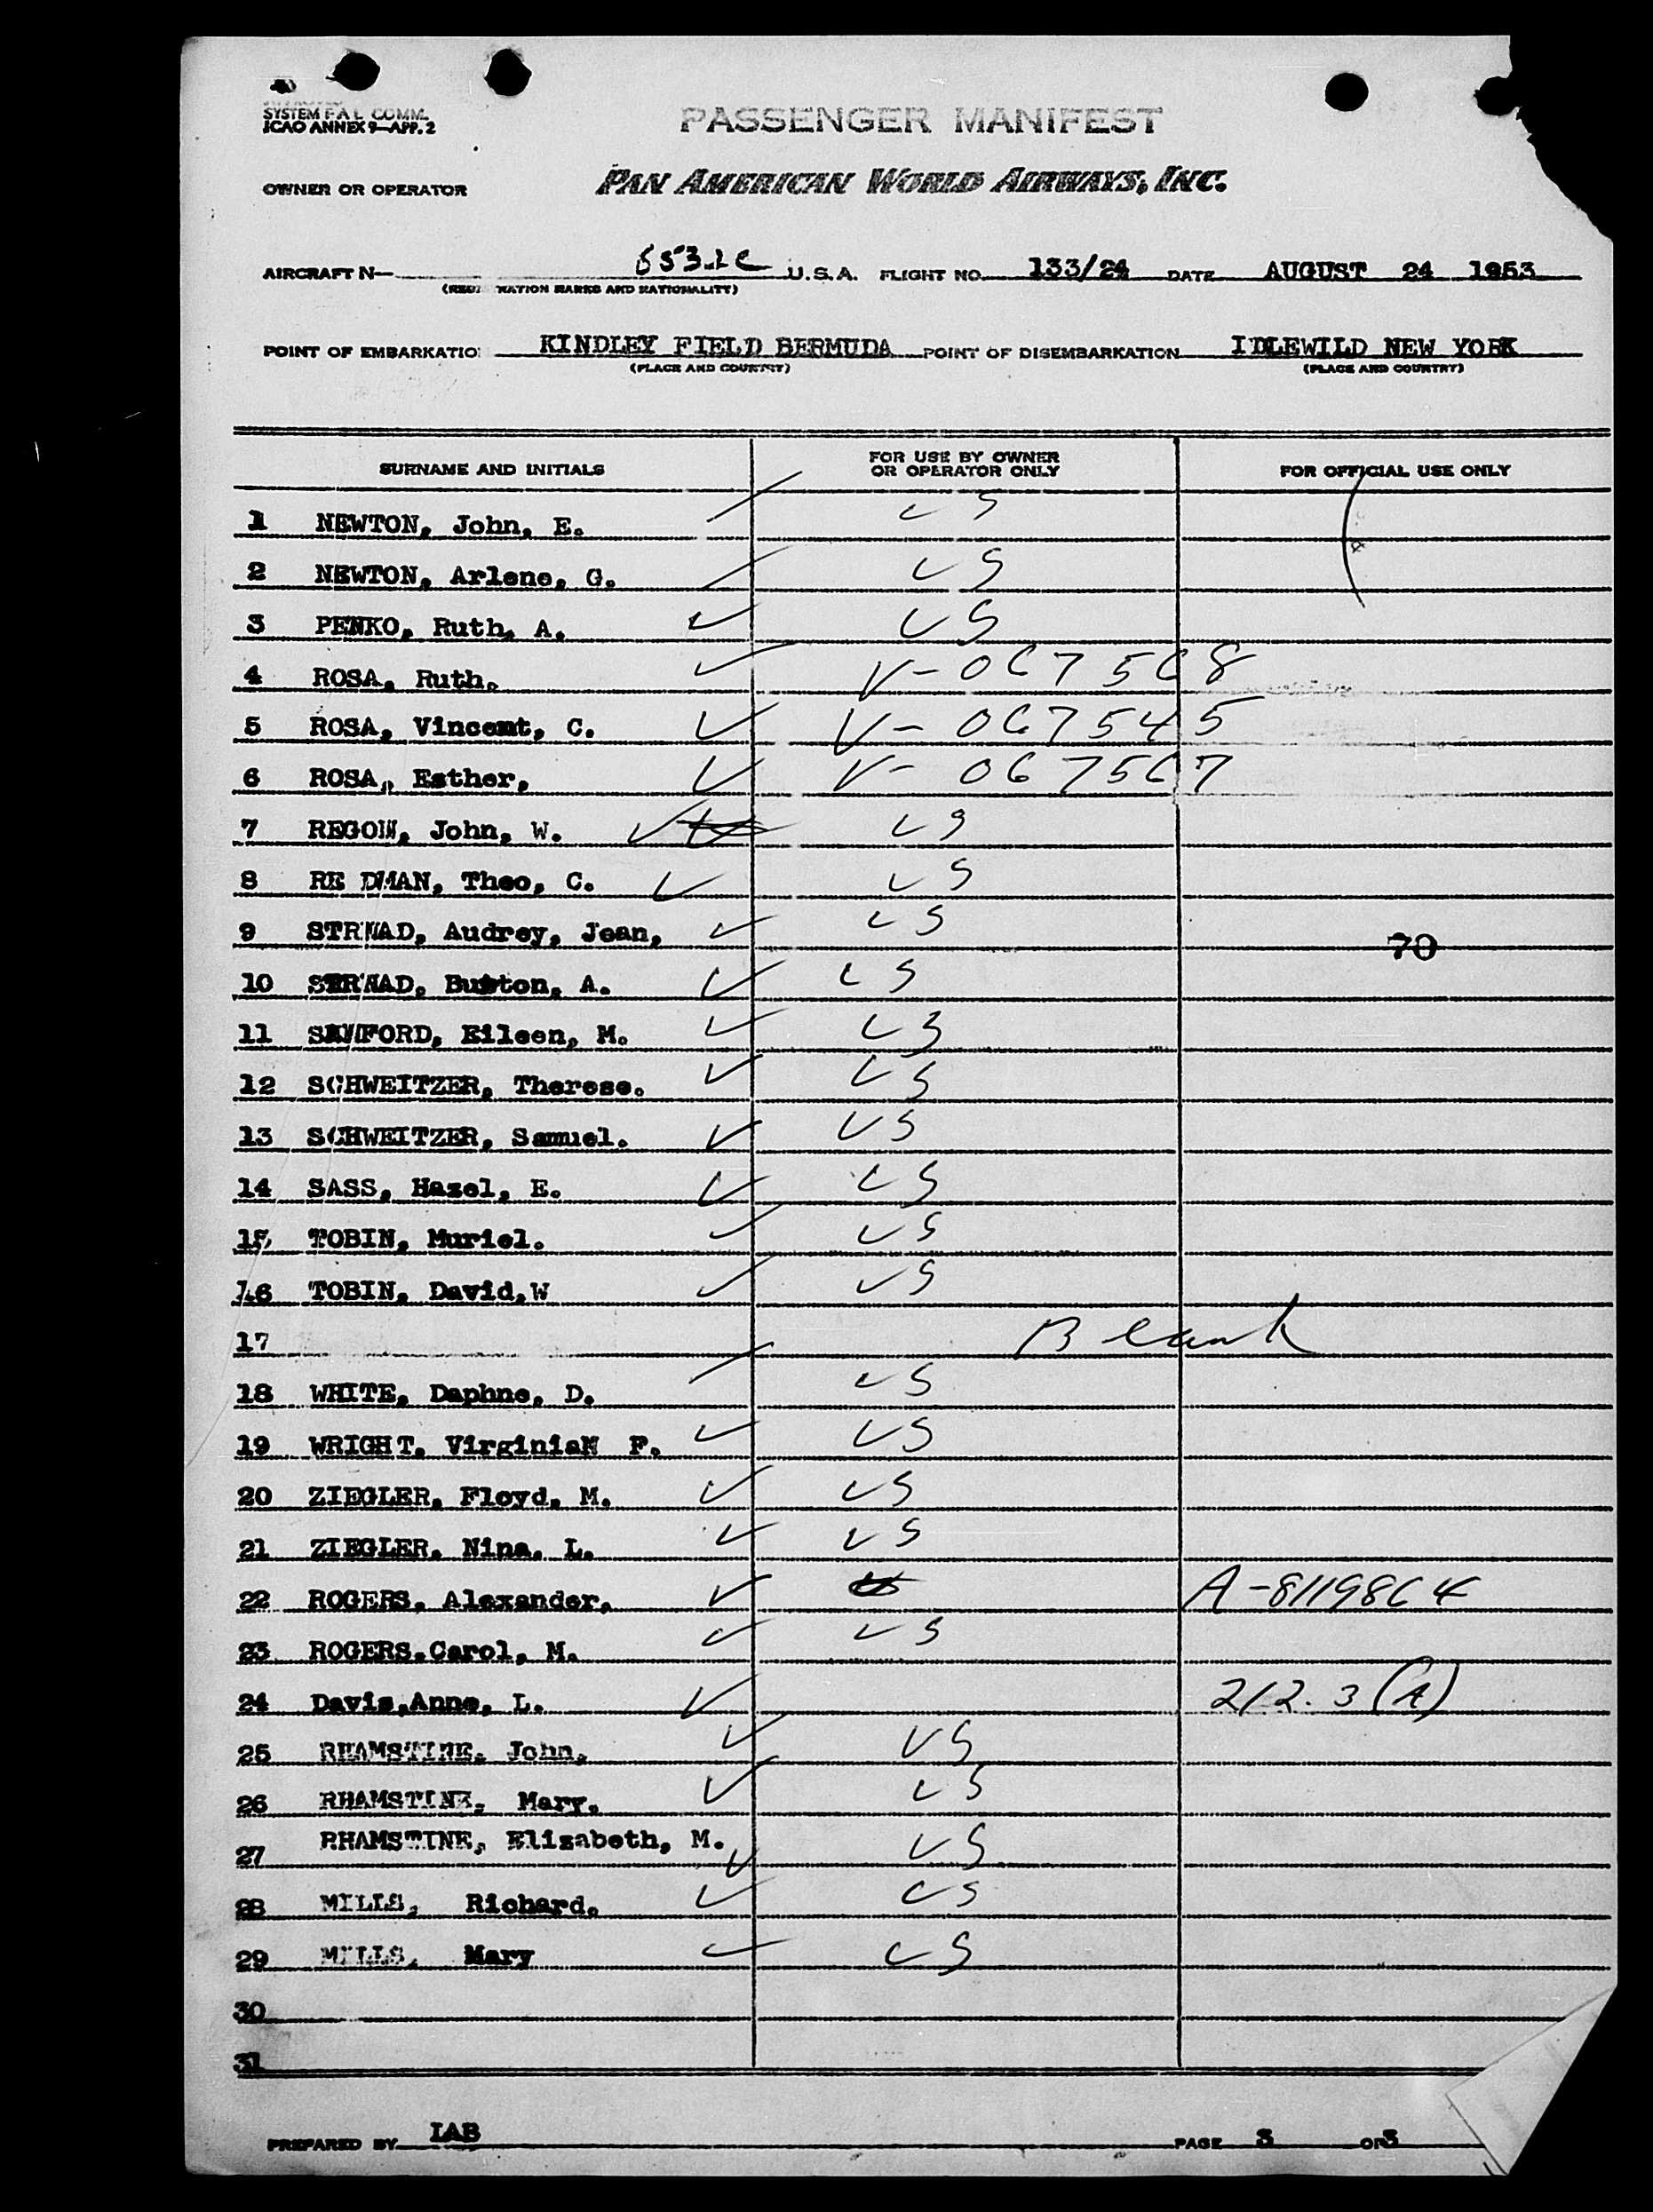 SYSTEM FAL COMM.
ICAO ANNEX 9—APP. 2
PASSENGER MANIFEST
OWNER OR OPERATOR PAN AMERICAN WORLD AIRWAYS, INC.
AIRCRAFT N— U.S.A. FLIGHT NO. 133/24 DATE AUGUST 24 1953
(REGISTRATION MARKS AND NATIONALITY)
POINT OF EMBARKATIO KINDLEY FIELD BERMUDA POINT OF DISEMBARKATION IDLEWILD NEW YORK
(PLACE AND COUNTRY) (PLACE AND COUNTRY)
SURNAME AND INITIALS FOR USE BY OWNER OR OPERATOR ONLY FOR OFFICIAL USE ONLY
1 NEWTON, John, E. US
2 NEWTON, Arlene, G. US
3 PENKO, Ruth, A. US
4 ROSA, Ruth. V-067568
5 ROSA, Vincent, C. V-067545
6 ROSA, Esther, V-067567
7 REGOW, John, W. US
8 RE DMAN, Theo, C. US
9 STRNAD, Audrey, Jean, US
70
10 STRNAD, Burton, A. US
11 SANFORD, Eileen, M. US
12 SCHWEITZER, Therese. US
13 SCHWEITZER, Samuel. US
14 SASS, Hazel, E. US
15 TOBIN, Muriel. US
16 TOBIN, David,W US
17 Blank
18 WHITE, Daphne, D. US
19 WRIGHT. Virginia F. US
20 ZIEGLER, Floyd, M. US
21 ZIEGLER, Nina, L. US
22 ROGERS, Alexander, A-8119864
23 ROGERS.Carol, M. US
24 Davis,Anne, L. 212.3(A)
25 RHAMSTINE, John, US
26 RHAMSTINE, Mary. US
27 RHAMSTINE, Elizabeth, M. US
28 MILLS, Richard. US
29 MILLS, Mary US
30
31
PREPARED BY IAB PAGE 3 OF 3